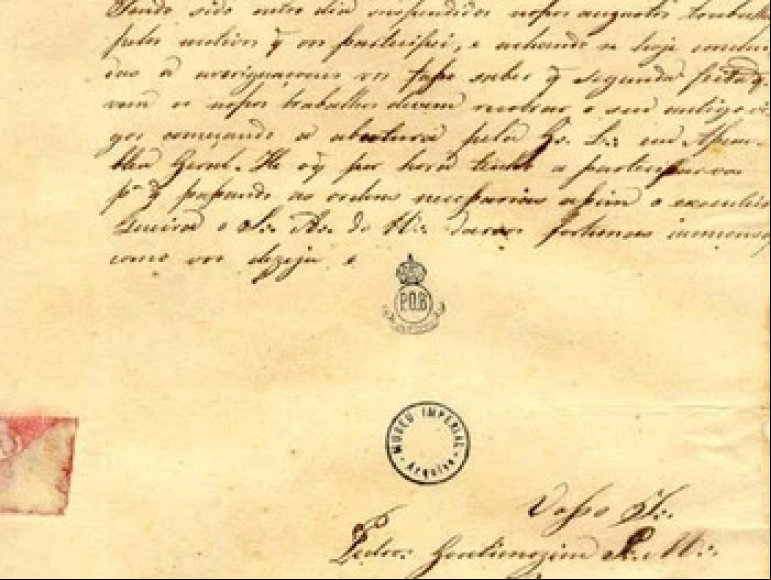 Tendo sido outro dia suspendidos nossos augustos trabalhos
pelos motivos q̃ vos participei, e achando se hoje conclui
das as averiguaçoens vos faço saber q̃ segunda feira q.
vem os nossos trabalhos devem recobrar o seu antigo vi
gor começando a abertura pela G∴ L∴ em Assem
blea Geral. He o q̃ por hora tenho a participar vos
pª q̃ passando as ordens necessarias assim o executeis
Queira o S∴ A∴ do U∴ darvos fortunas immensas
como vos dezeja e
P.O.B
MUSEU IMPERIAL
Arquivo
Vosso I∴
Pedro Guatimozim P∴ M∴